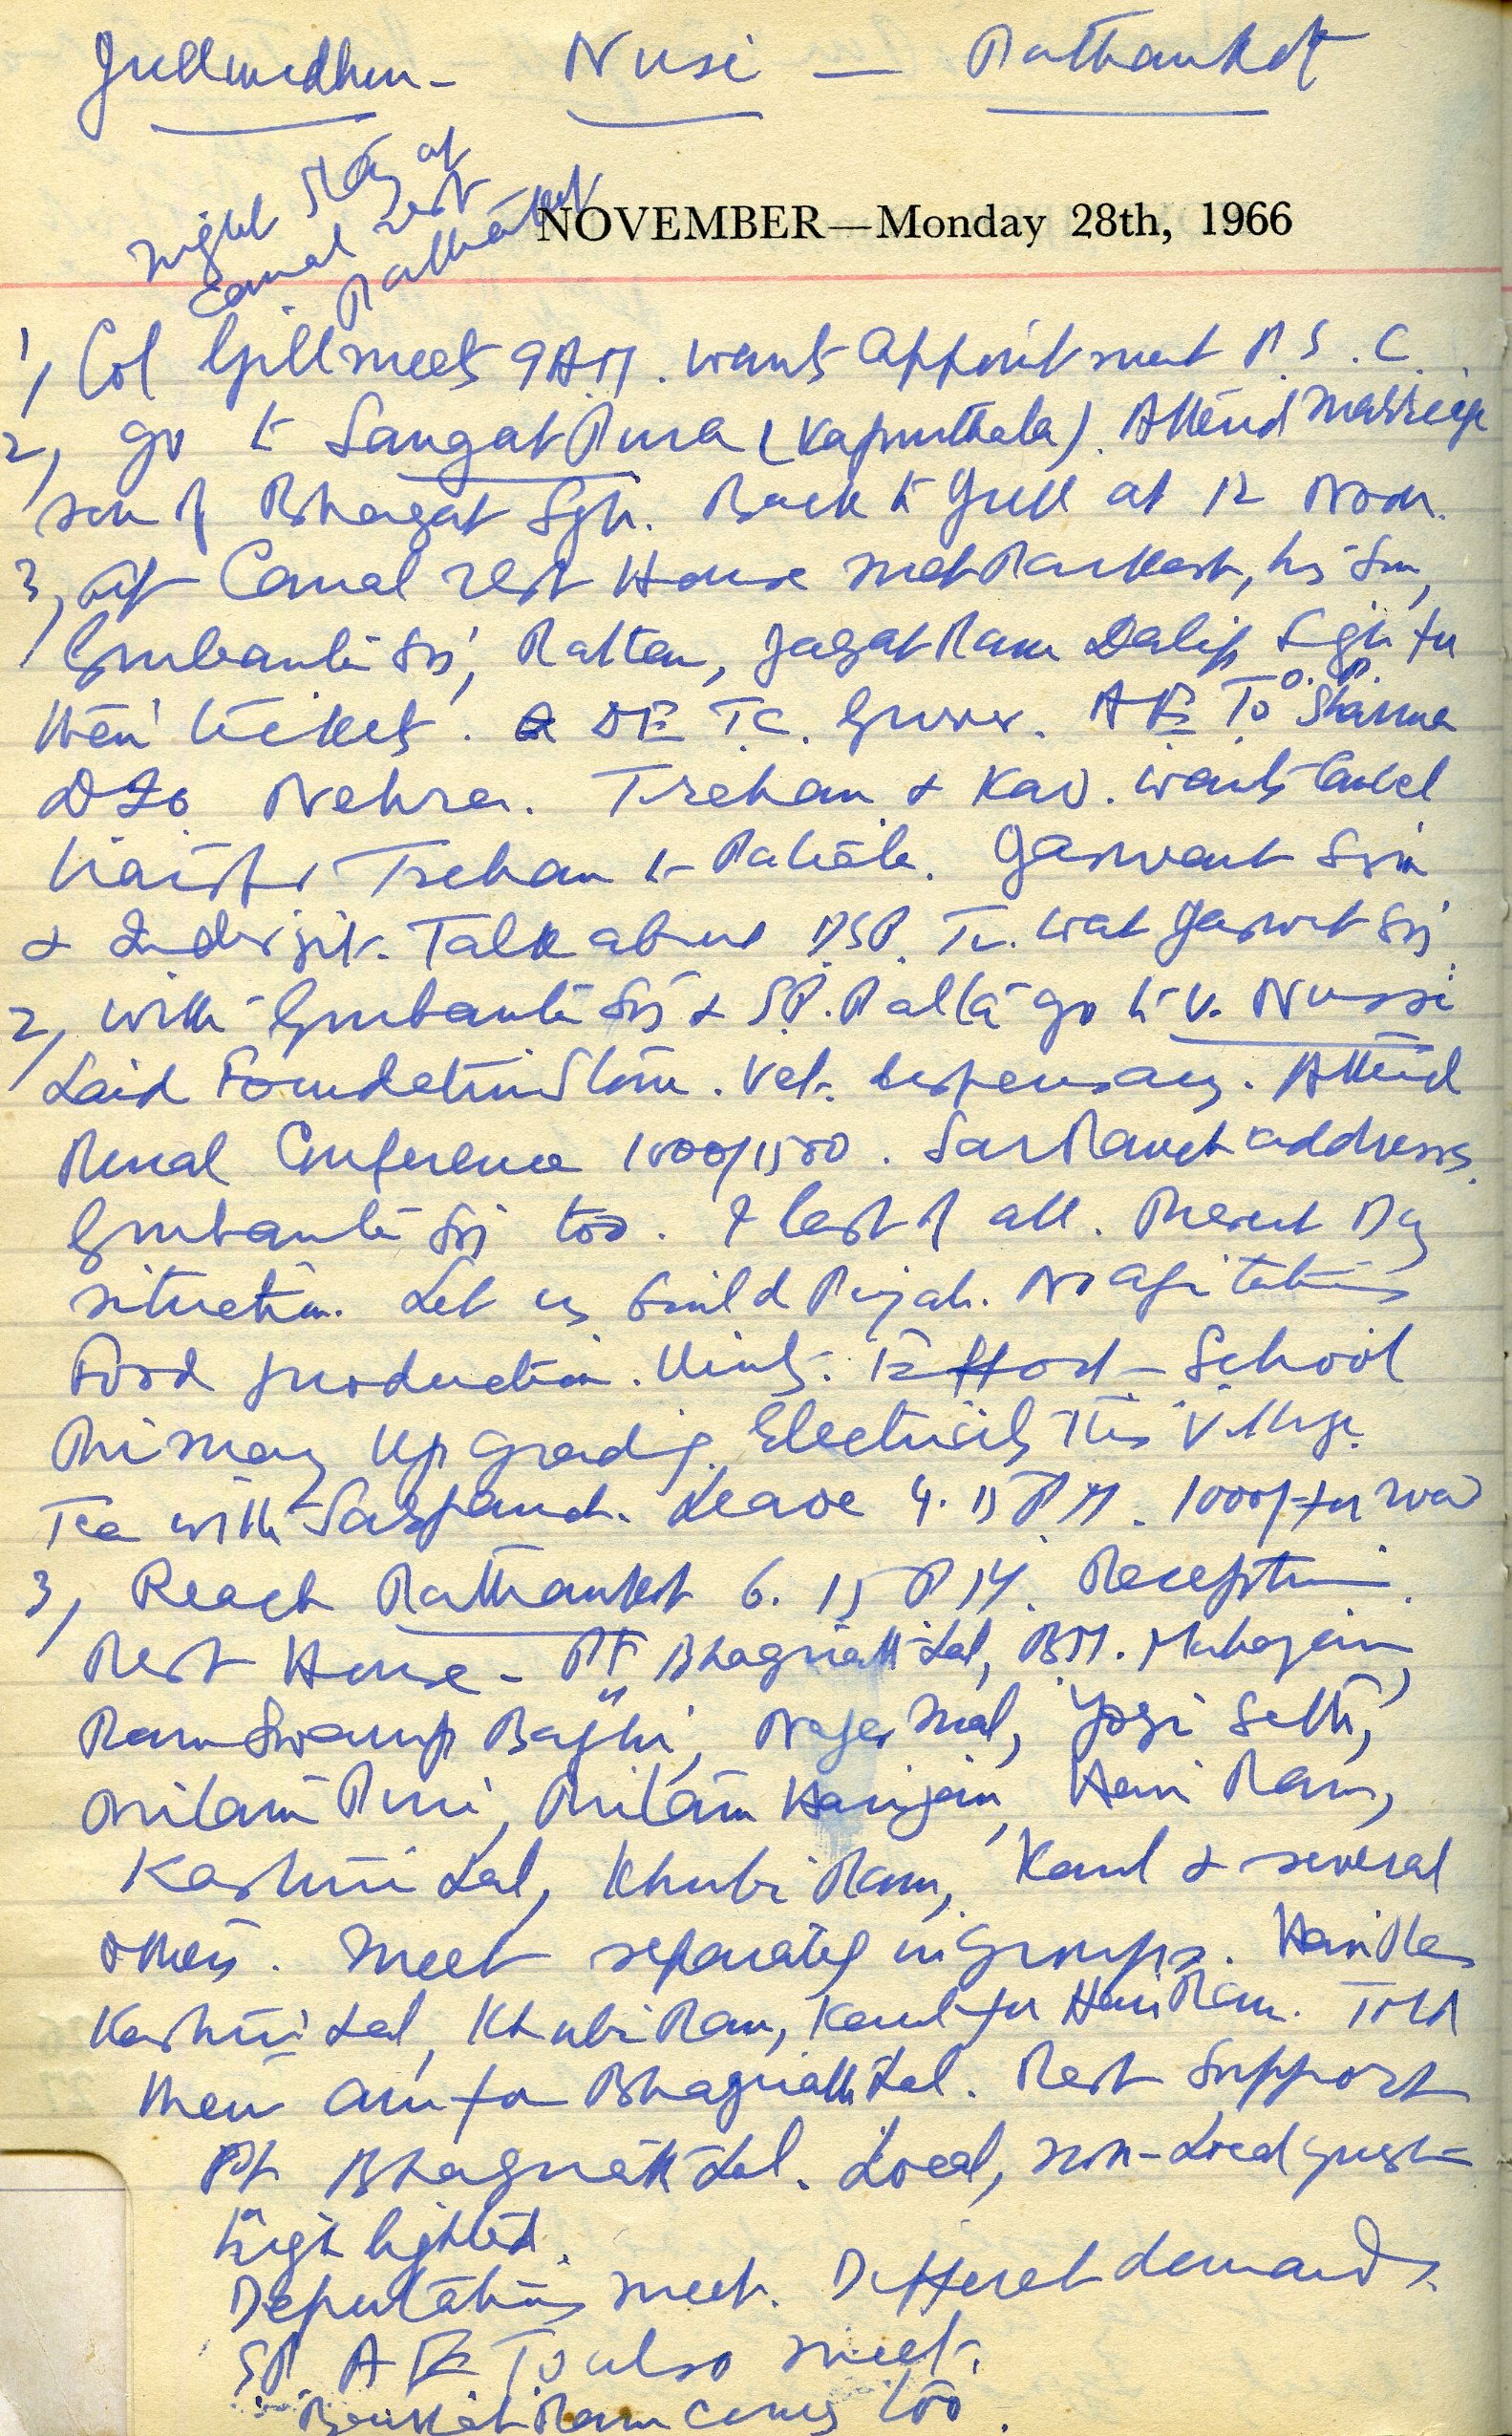 Jullundhur - Nusi - Pathankot
Night stay at
canal rest
Pathankot
NOVEMBER—Monday 28th, 1966
1, Col Gill meets 9 AM. wants appointment P.S.C.
2, go to Sangat Pura (Kapurthala). Attend marriage
son of Bhagat Sgh. Back to Jull at 12 Noon.
3, at Canal rest House met his son,
Gurbanta Sgi, Rattan, Jagat Ram Dalip Sgh for
their tickets. DETC. Grover. AETO O.P. Sharma
DIO Nehra. Trehan & Kav. wants cancel
transfer Trehan to Patiala. Jaswant Srin
& Inderjit. Talk about DSP. Jaswt Sgi.
2, with Gurbanta Sgi & S.P. Ralla go to V. Nussi
Laid Foundation Stone. Vet. dispensary. Attend
Rural Conference 1000/1500. Sar Panch address.
Gurbanta Sgi too. I last of all. Present Day
situation. Let us build Punjab. No agitations
Food production. Unity. Effort - School
Primary upgrading. Electricity this village.
Tea with Sarpanch. Leave 4.15 PM. 1000/- for
3, Reach Pathankot 6.15 PM. Reception.
Rest House - PT Bhagirath Lal, B.M. Mahajan,
Ram Swarup Baghi, Nager Mal, Yogi Sethi,
Pritam Puri, Pritam Harijan, Hari Ram,
Kashmiri Lal, Khubi Ram, Kaul & several
others. Meet separately in groups. Hari Ram
Kashmiri Lal, Khubi Ram, Kaul for Hari Ram. Told
them am for Bhagirath Lal. Rest support
Pt Bhagirath Lal. Local, non-Local
high lighted.
Deputations meet. Different demands.
SP. AETO also meet.
Ram comes too.